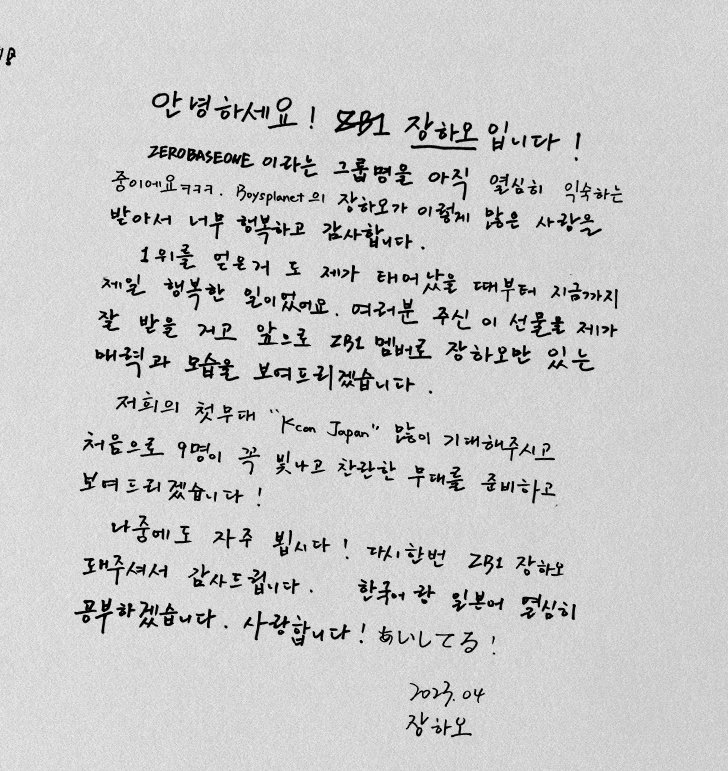 안녕하세요! ZB1 장하오 입니다!
ZEROBASEONE 이라는 그룹명을 아직 열심히 익숙하는
중이에요ㅋㅋㅋ. Boysplanet의 장하오가 이렇게 많은 사랑을
받아서 너무 행복하고 감사합니다.
1위를 얻은거 도 제가 태어났을 때부터 지금까지
제일 행복한 일이었어요. 여러분 주신 이 선물을 제가
잘 받을 거고 앞으로 ZB1 멤버로 장하오만 있는
매력과 모습을 보여드리겠습니다.
저희의 첫무대 "Kcon Japan" 많이 기대해주시고
처음으로 9명이 꼭 빛나고 찬란한 무대를 준비하고
보여드리겠습니다!
나중에도 자주 뵙시다! 다시한번 ZB1 장하오
돼주셔서 감사드립니다. 한국어랑 일본어 열심히
공부하겠습니다. 사랑합니다! あいしてる!
2023.04
장하오